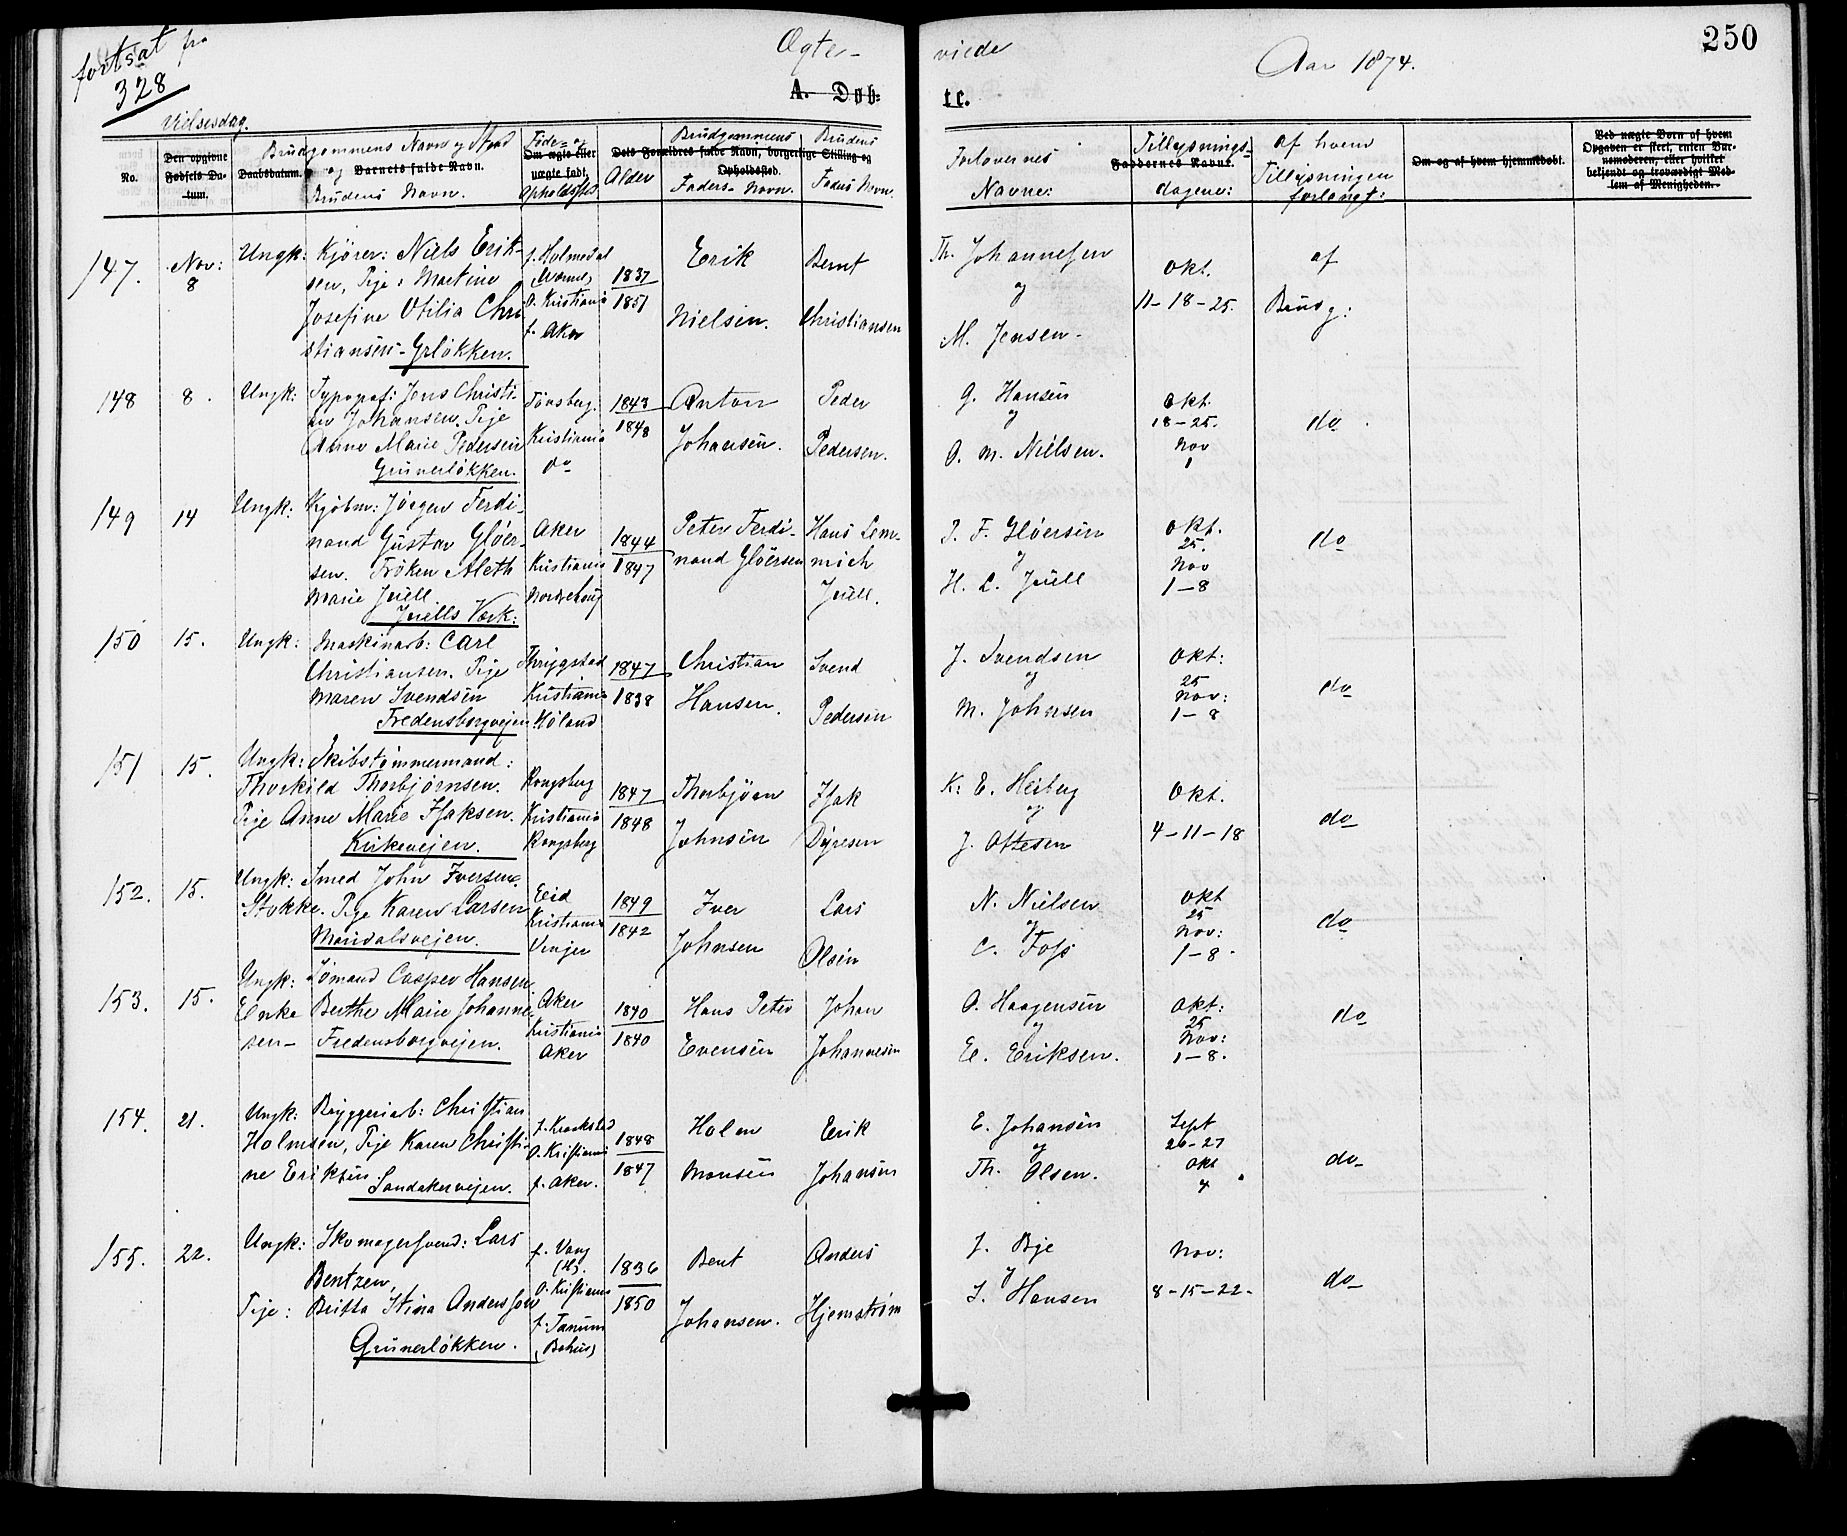 fortsat fra
328
Ægte-
viede
Aar 1874.
250
A. Døb-
te.
Vielsesdag.
No.
Den opgivne Fødsels Datum.
Daabsdatum.
Brudgommens Navn og Stand
og Barnets fulde Navn.
Brudens Navn.
Føde- og
Om ægte eller uægte født.
Opholdssted
Alder
Brudgommens
Brudens
Dets Forældres fulde Navn, borgerlige Stilling og Opholdssted.
Faders Navn.
Faders Navn.
Forlovernes
Navne:
Tillysnings-
Faddernes Navne.
dagene:
af hvem
Tillysningen
forlangt:
Om og af hvem hjemmedøbt.
Ved uægte Børn af hvem Opgaven er skeet, enten Barnemoderen, eller hvilket bekjendt og troværdigt Medlem af Menigheden.
147. Nov: 8
Ungk: Kjører: Niels Erik-
sen, Pige: Martine
Josefine Otilia Chri
stiansen- Grløkken.
f. Holmedal
(Værmel)
O. Kristiania
f. Aker
1837
1851
Erik
Nielsen.
Bernt
Christiansen
Th. Johannesen
og
M. Jensen.
Okt.
11-18-25.
af
Brudg:
148 8.
Ungk: Typograf: Jens Christi-
an Johansen. Pige
Anne Marie Pedersen
Grunerløkken.
Tønsberg.
Kristiania
do
1843
1848
Anton
Johansen.
Peder
Pedersen.
G. Hansen
og
O. M. Nielsen.
Okt.
18-25.
Nov
1
do
149 14
Ungk: Kjøbm: Jørgen Ferdi-
nand Gustav Gløer-
sen. Frøken Aleth
Marie Juell.
Juells Værk:
Aker
Kristiania
Norderhoug
1844
1847
Peter Ferdi-
nand Gløersen
Hans Lem-
mich
Juell.
J. F. Gløersen
og
H. L. Juell
Okt.
25.
Nov
1-8
do
150 15.
Ungk: Maskinarb: Carl
Christiansen. Pige
Maren Svendsen
Fredensborgvejen
Thrygstad
Kristiania
Høland
1847
1838
Christian
Hansen.
Svend
Pedersen
J. Svendsen
og
M. Johnsen
Okt:
25
Nov:
1-8
do
151 15.
Ungk: Skibstømmermand:
Thorkild Thorbjørnsen.
Pige Anne Marie Isaksen.
Kirkevejen.
Kongsberg
Kristiania
Kongsberg
1847
1848
Thorbjørn
Johnsen
Isak
Dyresen
K. E. Heiberg
og
J. Ottesen
Okt.
4-11-18
do
152. 15.
Ungk: Smed John Iversen.
Stokke. Pige Karen Larsen
Maridalsvejen.
Eid
Kristiania
Vinger
1849
1842
Iver
Johnsen
Lars
Olsen
N. Nielsen
og
C. Foss
Okt
25
Nov:
1-8.
do
153. 15.
Ungk: Sømand Casper Hansen
Enke Berthe Marie Johanne-
sen- Fredensborgvejen.
Aker
Kristiania
Aker
1840
1840
Hans Peter
Evensen
Johan
Johannesen
O. Haagensen
og
E. Eriksen.
Okt:
25
Nov:
1-8.
do
154. 21.
Ungk: Bryggeriarb: Christian
Holmsen, Pige Karen Christi-
ne Eriksen.
Sandakervejen.
f. Kraakstad
O. Kristiania
f. Aker.
1848
1847
Holm
Monsen
Erik
Johansen
E. Johansen
og
Th. Olsen.
Sept
20-27
Okt
4
do
155. 22.
Ungk: Skomagersvend: Lars
Bentzen,
Pige: Britta Stina Andersson
Grunerløkken.
f. Vang
(H).
O. Kristiania
f. Tanum
(Bohus)
1836
1850
Bent
Johansen.
Anders
Hjemstrøm
J. Bye
og
S. Hansen
Nov:
8-15-22-
do